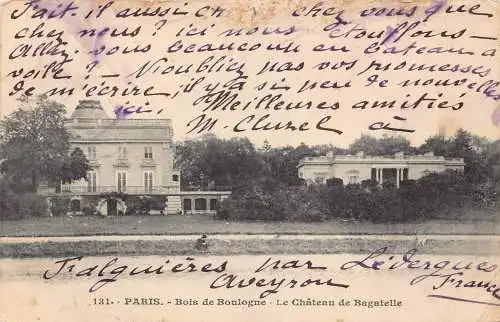 Fait-il aussi chaud chez vous que
chez nous? ici nous Etouffons -
Allez-vous beaucoup en bateau à
voile? - N'oubliez pas vos promesses
de m'écrire, il y a si peu de nouvelles
ici. Meilleures amitiés
M. Cluzel à
131. - PARIS. - Bois de Boulogne - Le Château de Bagatelle
Falguières par Lévergues
Aveyron France